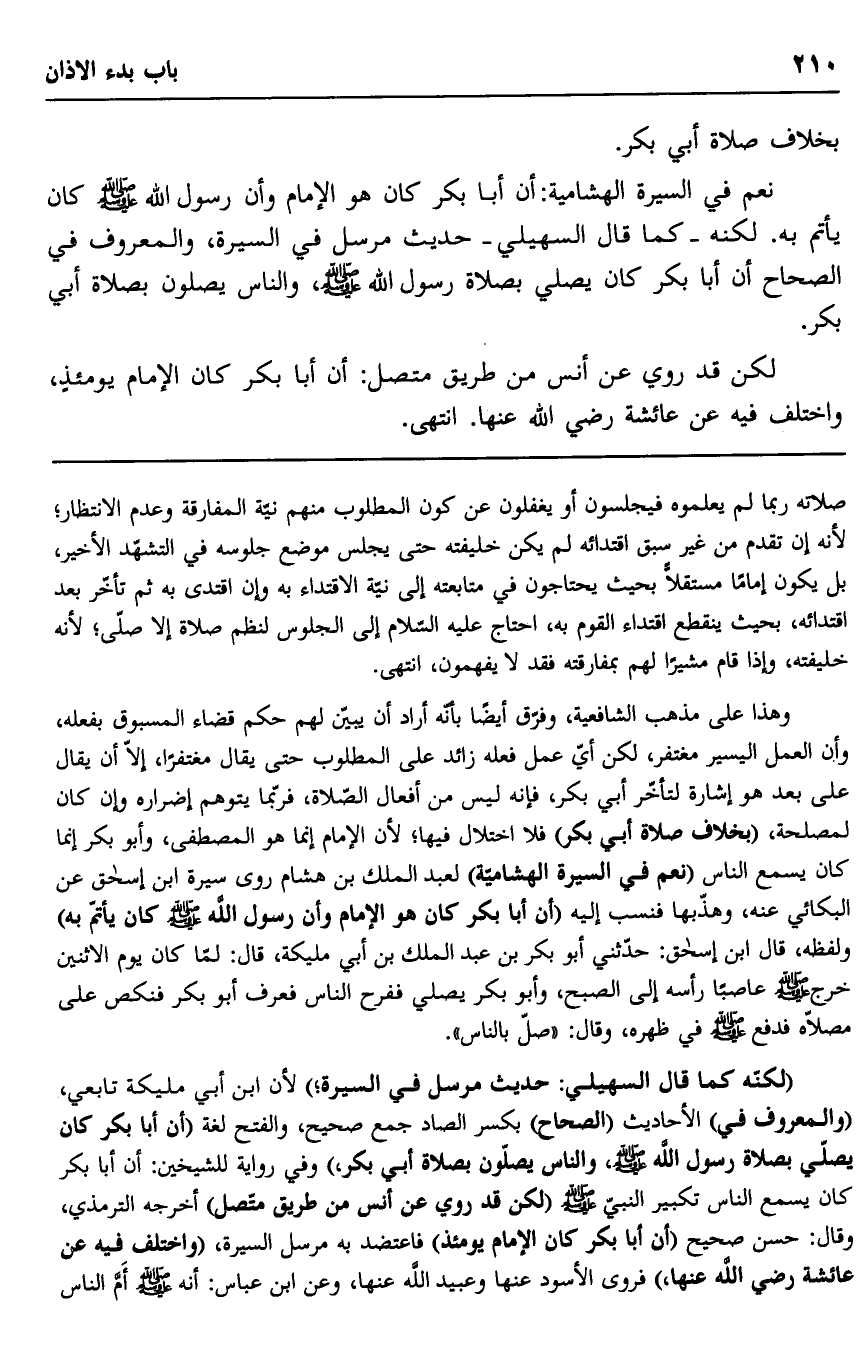 ٢١٠ باب بدء الاذان
بخلاف صلاة أبي بكر.
نعم في السيرة الهشامية: أن أبـا بكر كان هو الإمام وأن رسول الله ﷺ كان
يأتم به. لكنه ـ كما قال السهيلي ـ حديث مرسل في السيرة، والمعروف في
الصحاح أن أبا بكر كان يصلي بصلاة رسول الله ﷺ، والناس يصلون بصلاة أبي
بكر.
لكن قد روي عن أنس من طريق متصل: أن أبا بكر كان الإمام يومئذٍ،
واختلف فيه عن عائشة رضي الله عنها. انتهى.
صلاته ربما لم يعلموه فيجلسون أو يغفلون عن كون المطلوب منهم نيّة المفارقة وعدم الانتظار؛
لأنه إن تقدم من غير سبق اقتدائه لم يكن خليفته حتى يجلس موضع جلوسه في التشهّد الأخير،
بل يكون إمامًا مستقلاًّ بحيث يحتاجون في متابعته إلى نيّة الاقتداء به وإن اقتدى به ثم تأخّر بعد
اقتدائه، بحيث ينقطع اقتداء القوم به، احتاج عليه السّلام إلى الجلوس لنظم صلاة إلا صلّى؛ لأنه
خليفته، وإذا قام مشيرًا لهم بمفارقته فقد لا يفهمون، انتهى.
وهذا على مذهب الشافعية، وفرّق أيضًا بأنّه أراد أن يبيّن لهم حكم قضاء المسبوق بفعله،
وأن العمل اليسير مغتفر، لكن أيّ عمل فعله زائد على المطلوب حتى يقال مغتفرًا، إلاّ أن يقال
على بعد هو إشارة لتأخّر أبي بكر، فإنه ليس من أفعال الصّلاة، فربّما يتوهم إضراره وإن كان
لمصلحة، (بخلاف صلاة أبي بكر) فلا اختلال فيها؛ لأن الإمام إنما هو المصطفى، وأبو بكر إنما
كان يسمع الناس (نعم في السيرة الهشاميّة) لعبد الملك بن هشام روى سيرة ابن إسحٰق عن
البكائي عنه، وهذّبها فنسب إليه (أن أبا بكر كان هو الإمام وأن رسول اللَّه ﷺ كان يأتمّ به)
ولفظه، قال ابن إسحٰق: حدّثني أبو بكر بن عبد الملك بن أبي مليكة، قال: لمّا كان يوم الاثنين
خرج ﷺ عاصبًا رأسه إلى الصبح، وأبو بكر يصلي ففرح الناس فعرف أبو بكر فنكص على
مصلاّه فدفع ﷺ في ظهره، وقال: «صلّ بالناس».
(لكنّه كما قال السهيلي: حديث مرسل في السيرة؛) لأن ابن أبي مليكة تابعي،
(والمعروف في) الأحاديث (الصحاح) بكسر الصاد جمع صحيح، والفتح لغة (أن أبا بكر كان
يصلّي بصلاة رسول اللَّه ﷺ، والناس يصلّون بصلاة أبي بكر،) وفي رواية للشيخين: أن أبا بكر
كان يسمع الناس تكبير النبيّ ﷺ (لكن قد روي عن أنس من طريق متّصل) أخرجه الترمذي،
وقال: حسن صحيح (أن أبا بكر كان الإمام يومئذ) فاعتضد به مرسل السيرة، (واختلف فيه عن
عائشة رضي اللَّه عنها،) فروى الأسود عنها وعبيد اللَّه عنها، وعن ابن عباس: أنه ﷺ أَمَّ الناس